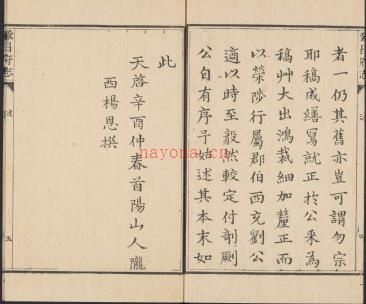 者一仍其舊亦豈可謂勿宗
耶稿成繕寫就正於公采為
稿艸大出鴻裁細加釐正而
以榮陟行屬郡伯西充劉公
適以時至毅然較定付剞劂
公自有序予姑述其本末如
此
天啓辛酉仲春首陽山人隴
西楊恩撰
nayona.cn
五